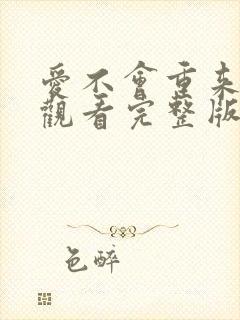 愛不會重来
觀看完整版
色醉